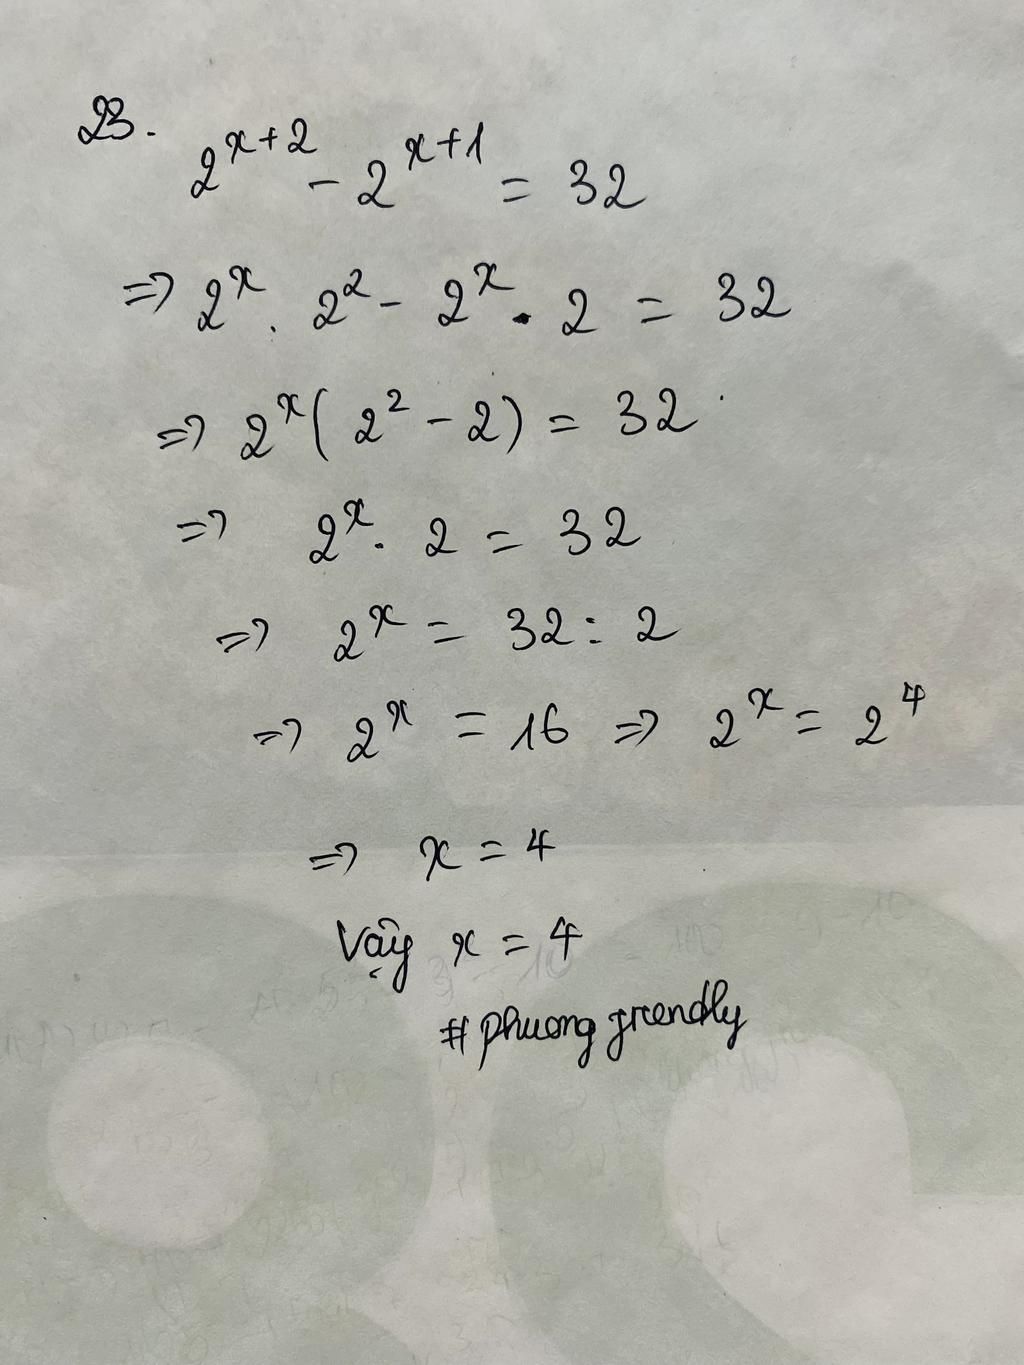 23. 2^{x+2} - 2^{x+1} = 32
=> 2^x . 2^2 - 2^x . 2 = 32
=> 2^x ( 2^2 - 2) = 32
=> 2^x . 2 = 32
=> 2^x = 32 : 2
=> 2^x = 16 => 2^x = 2^4
=> x = 4
Vậy x = 4
# phuong